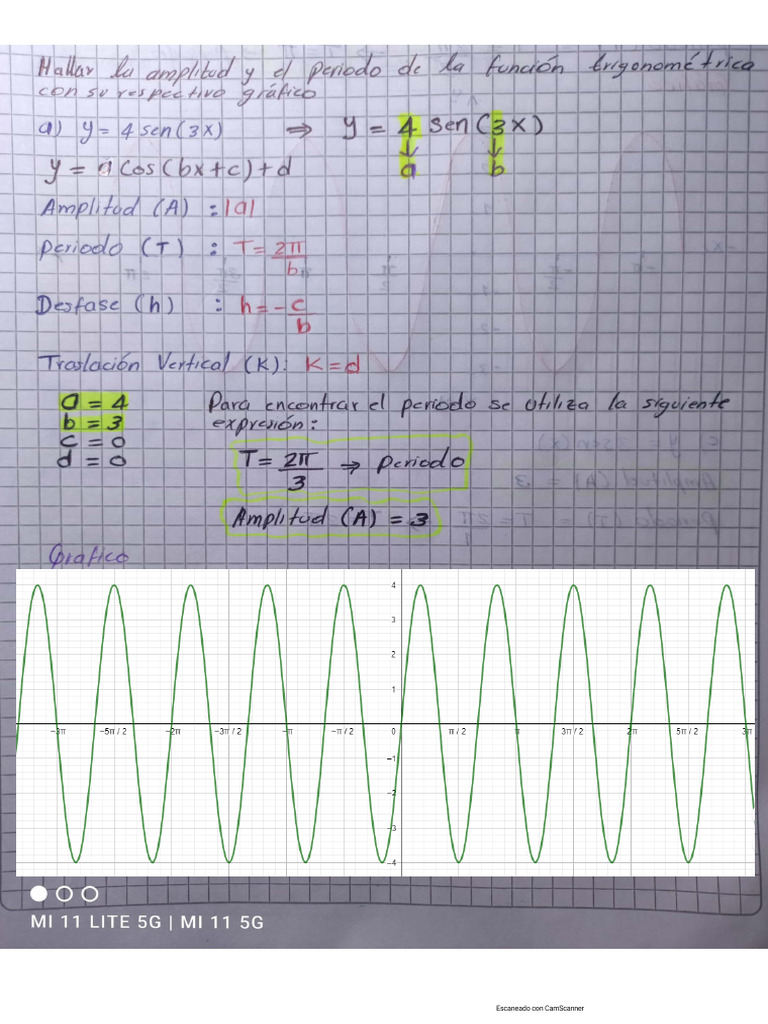 Hallar la amplitud y el periodo de la función trigonométrica
con su respectivo gráfico
a) y = 4 sen(3x) ⇒ y = 4 sen(3x)
y = a cos(bx+c)+d a b
Amplitud (A) : |a|
Periodo (T) : T = 2π/b
Desfase (h) : h = -c/b
Traslación Vertical (K): K = d
a = 4 Para encontrar el periodo se utiliza la siguiente
b = 3 expresión:
c = 0
d = 0 T = 2π/3 ⇒ Periodo
Amplitud (A) = 3
Grafico
4
3
2
1
−3π −5π / 2 −2π −3π / 2 −π −π / 2 0 π / 2 π 3π / 2 2π 5π / 2 3π
−1
−2
−3
−4
MI 11 LITE 5G | MI 11 5G
Escaneado con CamScanner